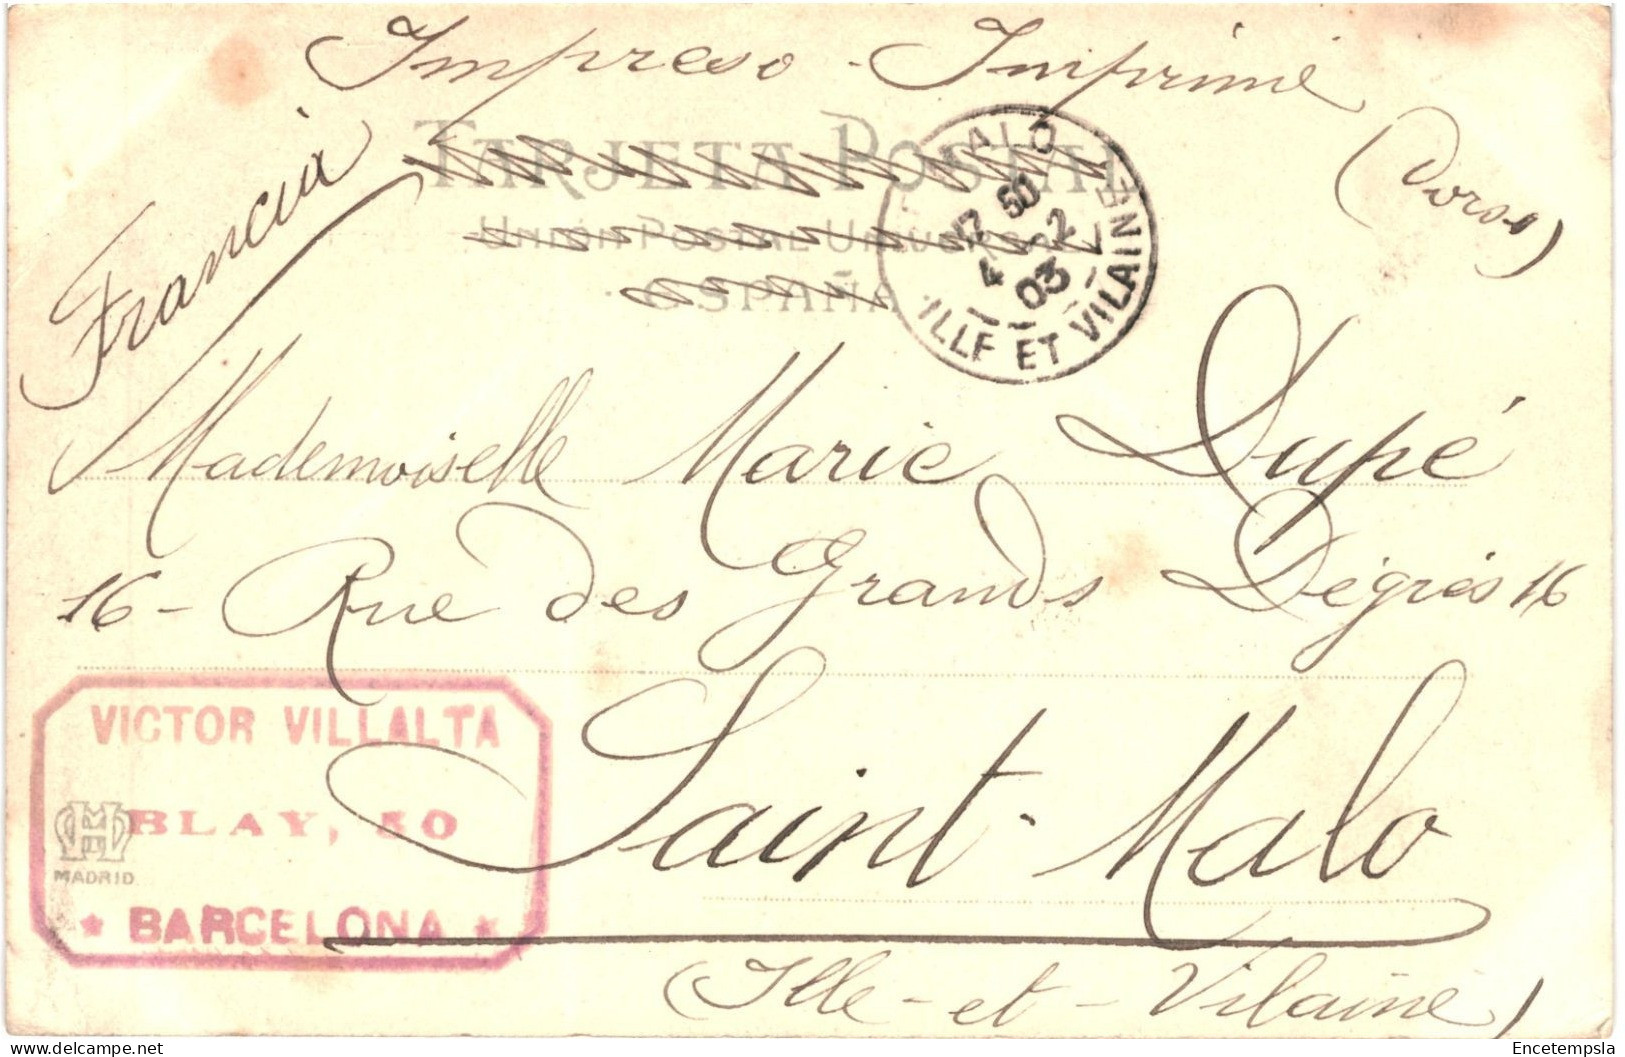 Impreso - Imprimé
(Dorso)
Francia
TARJETA POSTAL
UNIÓN POSTAL UNIVERSAL
ESPAÑA
MALO
17 50
4 - 2
03
ILLE ET VILAINE
Mademoiselle Marie Dupé
16 - Rue des Grands Dégrés 16
Saint-Malo
(Ille-et-Vilaine)
VICTOR VILLALTA
BLAY, 50
★ BARCELONA ★
MADRID
Encetempsla